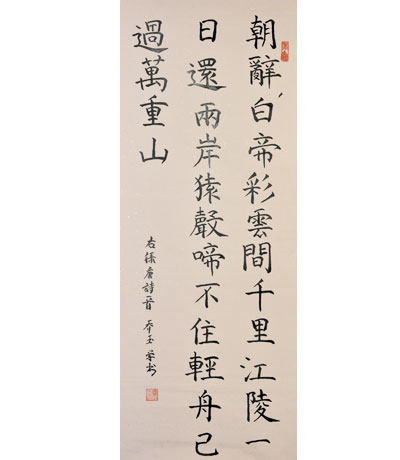 朝辭白帝彩雲間千里江陵一
日還兩岸猿聲啼不住輕舟已
過萬重山
右錄唐詩一首